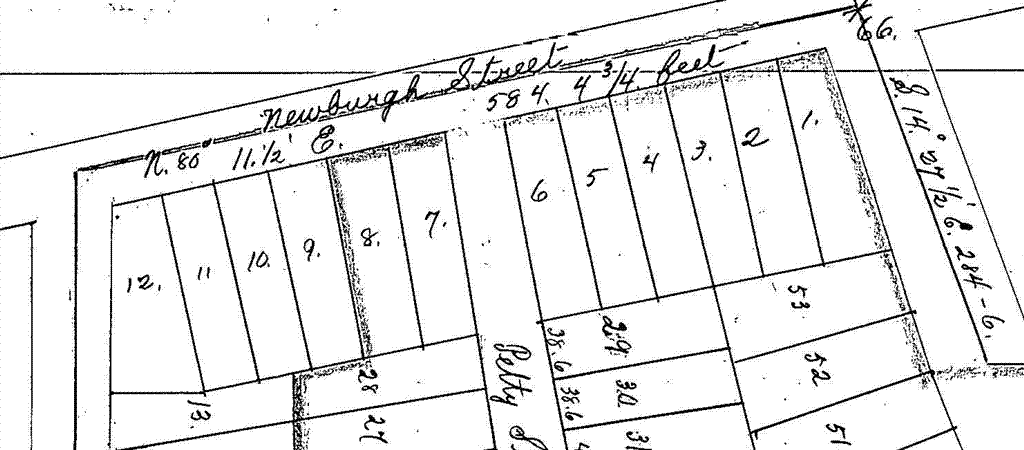 66.
Newburgh Street
N. 80° 11.½' E. 584. 4 3/4. feet
S. 14.° 27½' E. 284-6.
1.
2
3.
4
5
6
7.
8.
9.
10.
11
12.
13.
28
27
Petty S
29
38.6
30
38.6
31
53
52
51